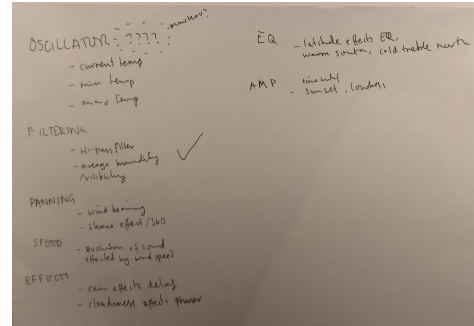 OSCILLATOR - ????
- current temp
- min temp
- max temp
FILTERING
- Hi-pass filter
- average humidity
/visibility
PANNING
- wind bearing
- stereo effect/360
SPEED - evolution of sound
effected by wind speed
EFFECTS
- rain effects delay
- cloudiness effects phaser
EQ - latitude effects EQ,
warm south, cold treble north
AMP
- sunset, loudness